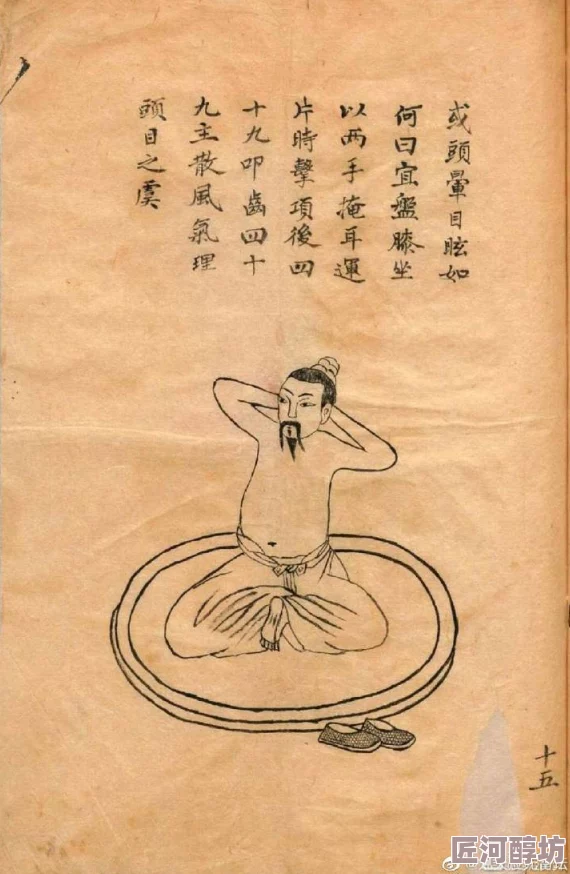 或頭暈目眩如
何曰宜盤膝坐
以两手掩耳運
片時擊項後四
十九叩齒四十
九主散風氣理
頭目之虞
十五
匠河醇坊